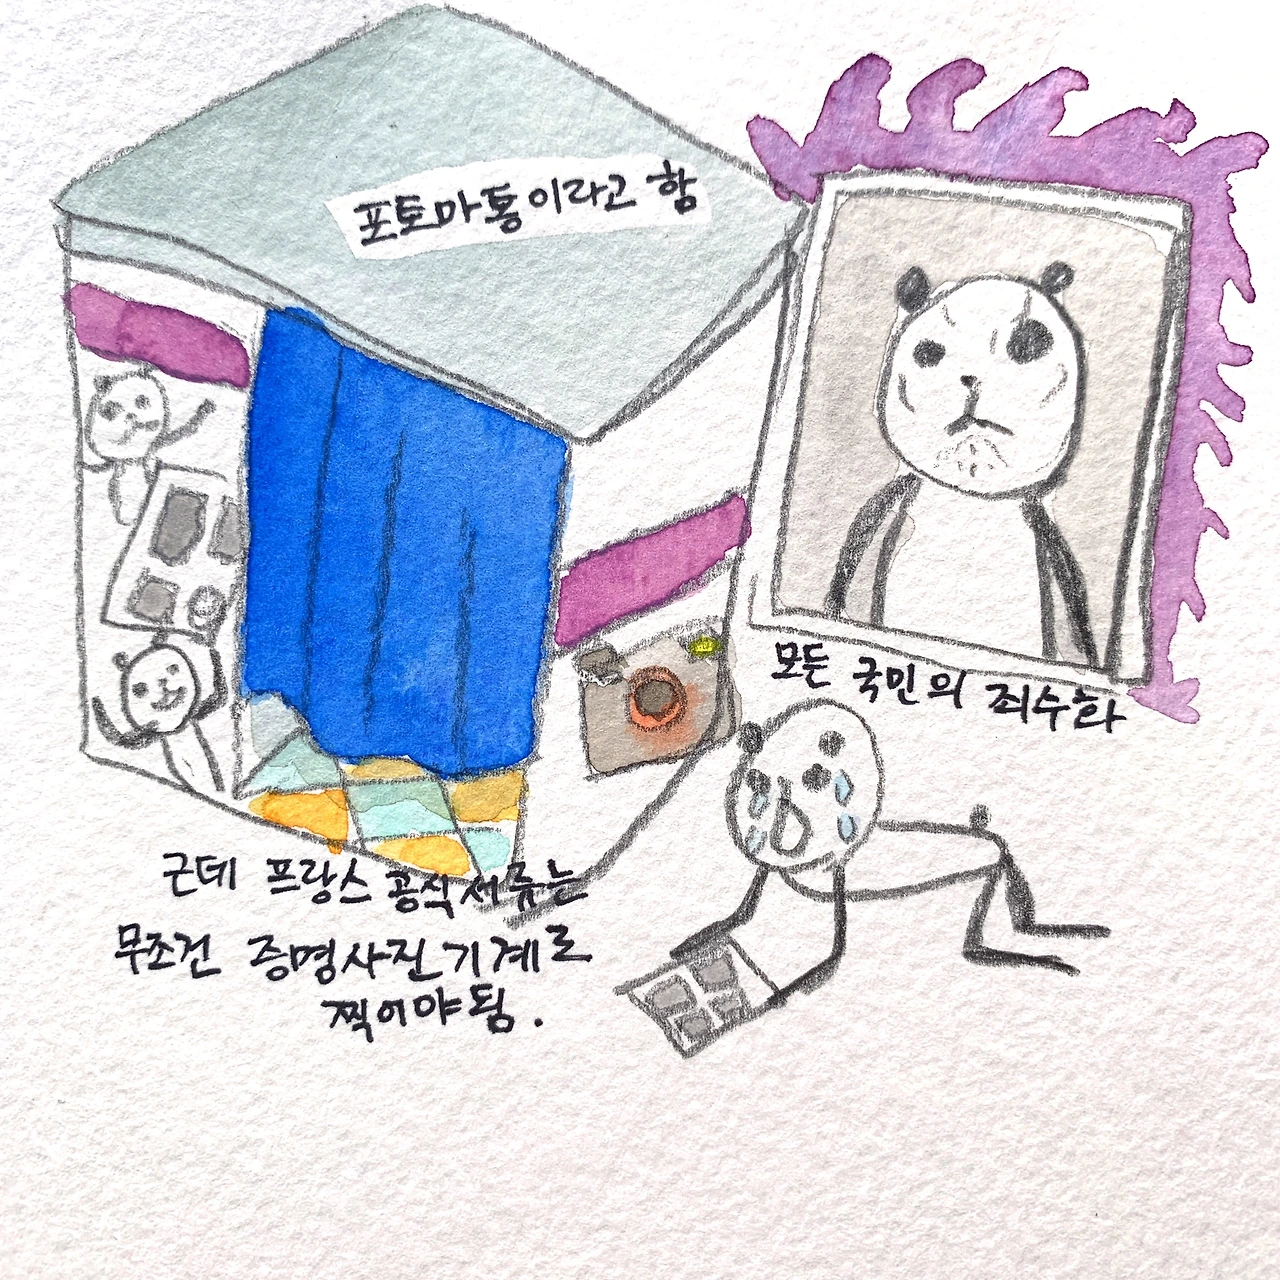 포토마통이라고 함
모든 국민의 죄수화
근데 프랑스 공식 서류는
무조건 증명사진 기계로
찍어야 됨.